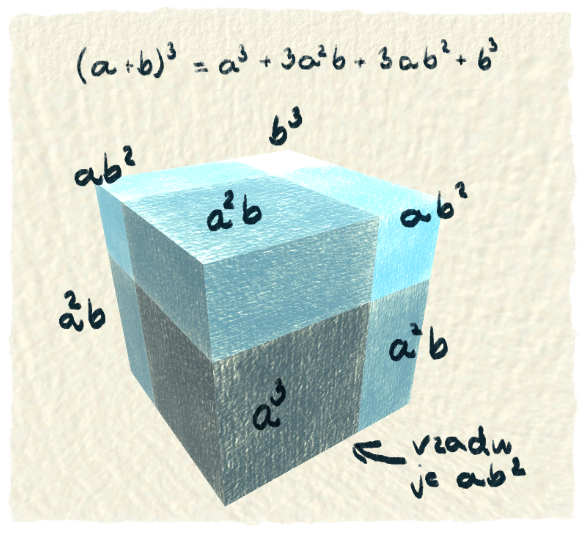 (a+b)³ = a³ + 3a²b + 3ab² + b³
b³
ab²
a²b
ab²
a²b
a²b
a³
vzadu
je ab²